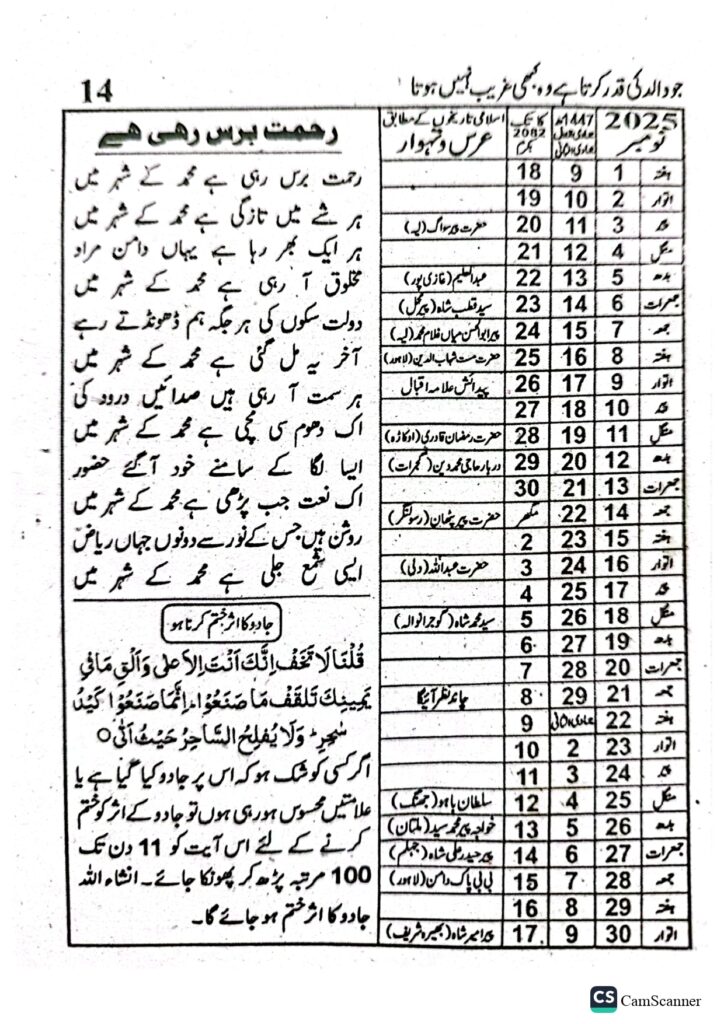 جو والد کی قدر کرتا ہے وہ کبھی غریب نہیں ہوتا
14
2025 نومبر
1447ھ جمادی الاول جمادی الثانی
کاتک 2082 بکرم
اسلامی تاریخوں کے مطابق
عرس و تہوار
ہفتہ 1 9 18
اتوار 2 10 19
پیر 3 11 20 حضرت پیر سواگ (لیہ)
منگل 4 12 21
بدھ 5 13 22 عبدالعلیم (غازی پور)
جمعرات 6 14 23 سید قطب شاہ (پیر محل)
جمعہ 7 15 24 پیر ابوالحسن میاں غلام محمد (لیہ)
ہفتہ 8 16 25 حضرت مست شہاب الدین (لاہور)
اتوار 9 17 26 پیدائش علامہ اقبال
پیر 10 18 27
منگل 11 19 28 حضرت رمضان قادری (اوکاڑہ)
بدھ 12 20 29 دربار حاجی محمد دین (گجرات)
جمعرات 13 21 30
جمعہ 14 22 مگھر حضرت پیر پٹھان (رسولنگر)
ہفتہ 15 23 2
اتوار 16 24 3 حضرت عبداللہ (دلی)
پیر 17 25 4
منگل 18 26 5 سید محمد شاہ (گوجرانوالہ)
بدھ 19 27 6
جمعرات 20 28 7
جمعہ 21 29 8 چاند نظر آئیگا
ہفتہ 22 جمادی الثانی 9
اتوار 23 2 10
پیر 24 3 11
منگل 25 4 12 سلطان باہو (جھنگ)
بدھ 26 5 13 خواجہ پیر محمد سید (ملتان)
جمعرات 27 6 14 پیر حیدر علی شاہ (جہلم)
جمعہ 28 7 15 بی بی پاک دامن (لاہور)
ہفتہ 29 8 16
اتوار 30 9 17 پیر امیر شاہ (بھیرہ شریف)
رحمت برس رھی ھے
رحمت برس رہی ہے محمد کے شہر میں
ہر شے میں تازگی ہے محمد کے شہر میں
ہر ایک بھر رہا ہے یہاں دامن مراد
مخلوق آ رہی ہے محمد کے شہر میں
دولت سکوں کی ہر جگہ ہم ڈھونڈتے رہے
آخر یہ مل گئی ہے محمد کے شہر میں
ہر سمت آ رہی ہیں صدائیں درود کی
اک دھوم سی مچی ہے محمد کے شہر میں
ایسا لگا کے سامنے خود آگئے حضور
اک نعت جب پڑھی ہے محمد کے شہر میں
روشن ہیں جس کے نور سے دونوں جہاں ریاض
ایسی شمع جلی ہے محمد کے شہر میں
جادو کا اثر ختم کرنا ہو
قُلْنَا لَا تَخَفْ اِنَّكَ اَنْتَ الْاَعْلٰى وَاَلْقِ مَا فِیْ
یَمِیْنِكَ تَلْقَفْ مَا صَنَعُوْا ؕ اِنَّمَا صَنَعُوْا كَیْدُ
سٰحِرٍ ؕ وَلَا یُفْلِحُ السَّاحِرُ حَیْثُ اَتٰى ○
اگر کسی کو شک ہو کہ اس پر جادو کیا گیا ہے یا
علامتیں محسوس ہو رہی ہوں تو جادو کے اثر کو ختم
کرنے کے لئے اس آیت کو 11 دن تک
100 مرتبہ پڑھ کر پھونکا جائے۔ انشاء اللہ
جادو کا اثر ختم ہو جائے گا۔
CS CamScanner